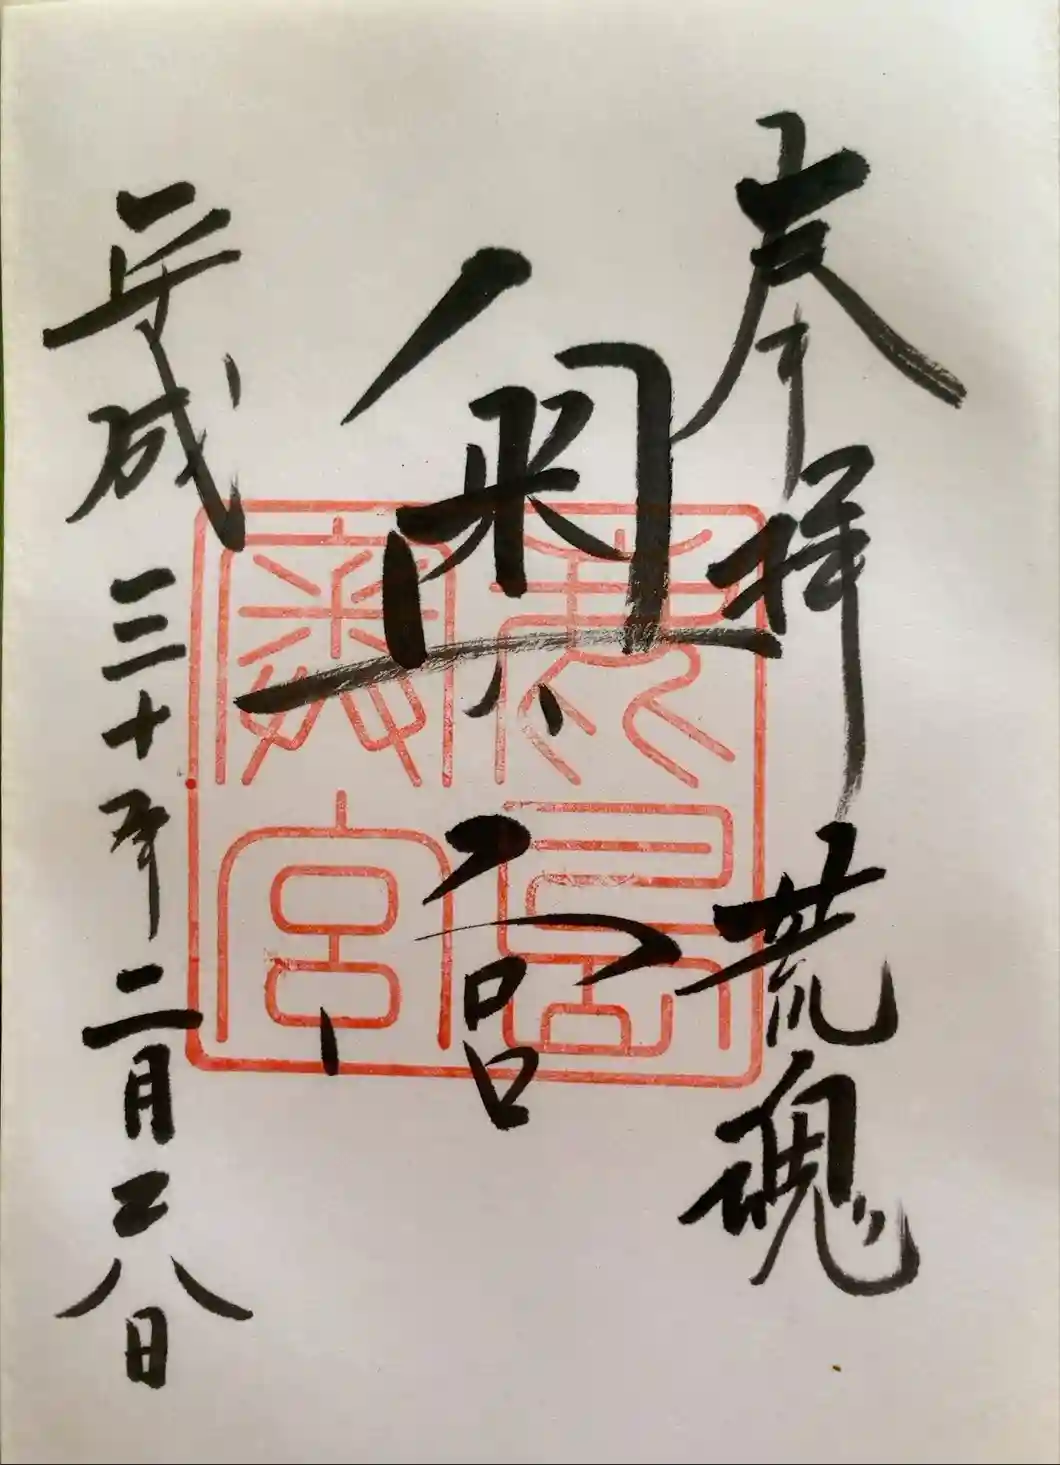 奉拝 荒魂
奥宮
鹿島
奥宮
平成三十年二月二八日